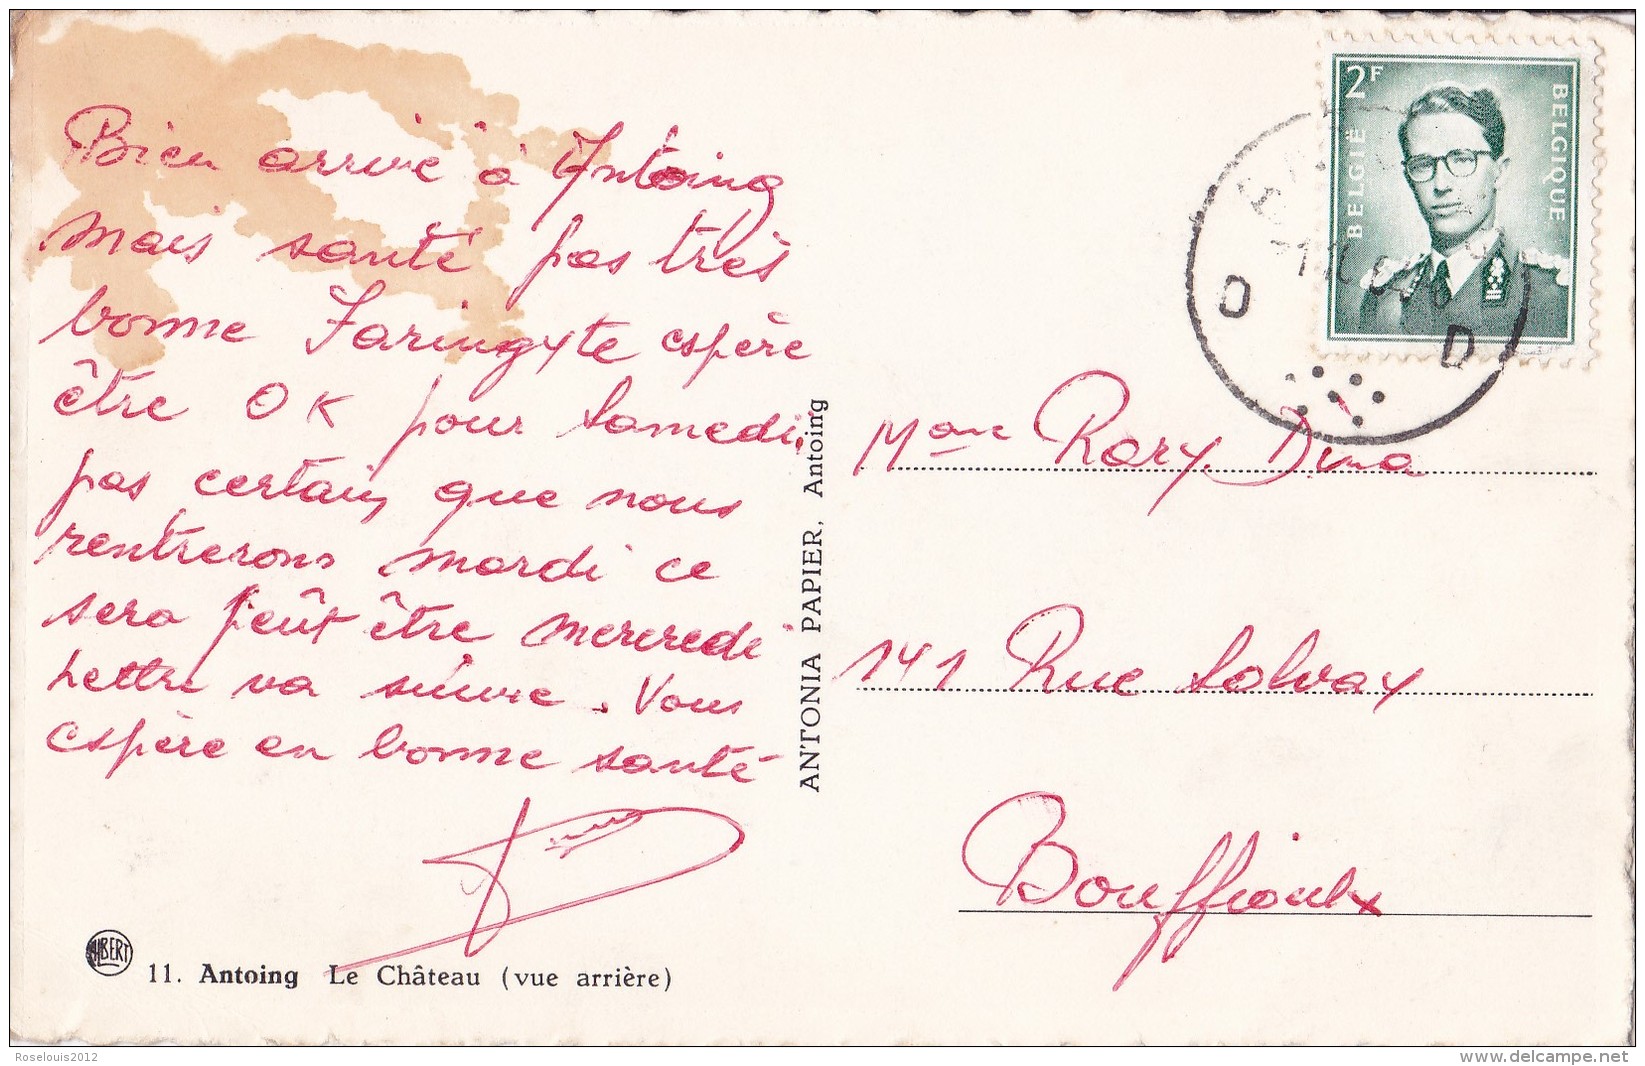 Bien arrivé à Antoing
mais santé pas très
bonne Faringyte espère
être OK pour Samedi,
pas certain que nous
rentrerons mardi ce
sera peût être mercredi
Lettre va suivre. Vous
espère en bonne santé
ALBERT
11. Antoing Le Château (vue arrière)
ANTONIA PAPIER, Antoing
2F
BELGIË
BELGIQUE
D D
Mme Rary. Dina
141 Rue Solvay
Bouffioulx
Roselouis2012
www.delcampe.net